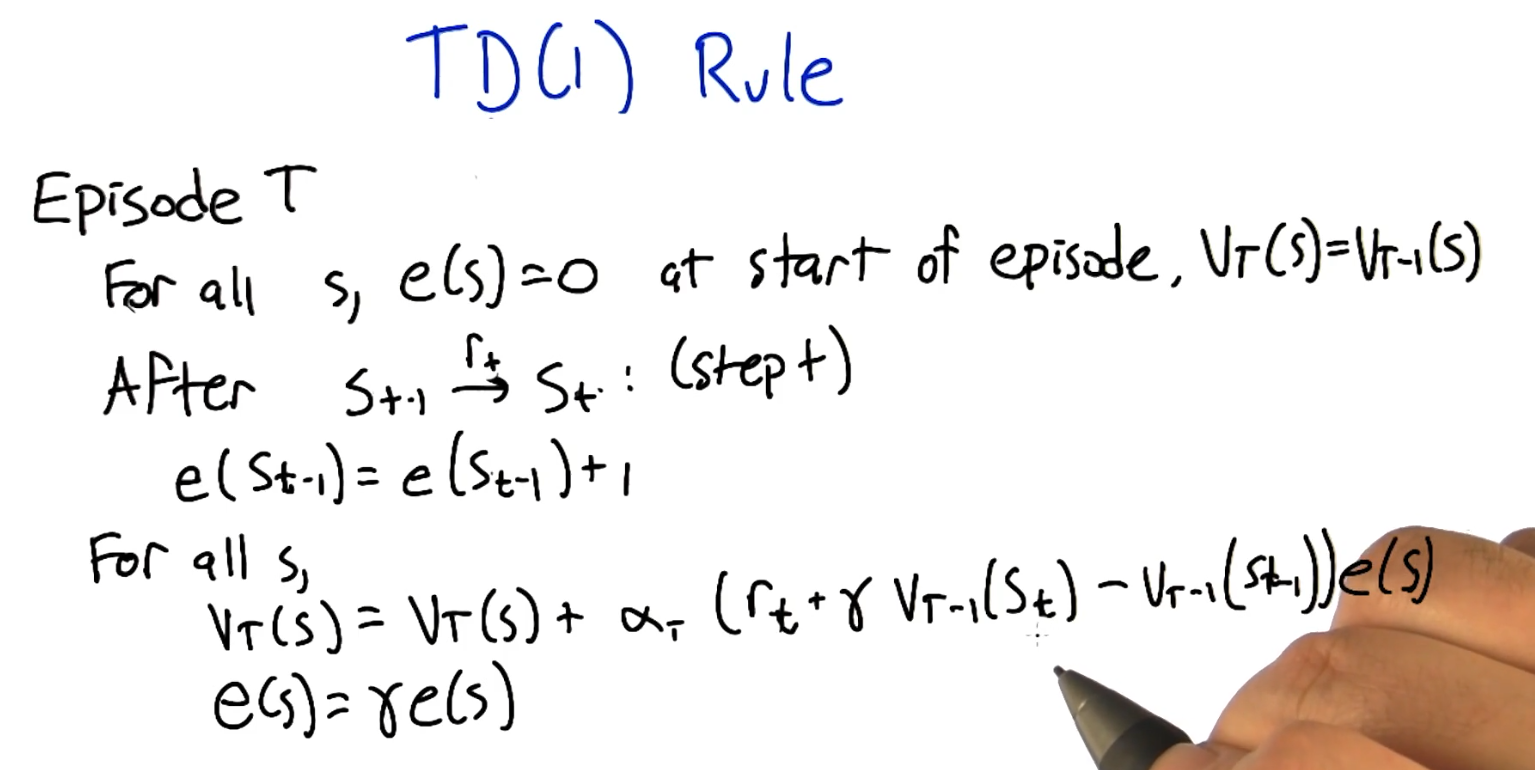 TD(1) Rule
Episode T
For all s, e(s)=0 at start of episode, V_T(s)=V_{T-1}(s)
After S_{t-1} \xrightarrow{r_t} S_t : (step t)
e(S_{t-1})= e(S_{t-1})+1
For all s,
V_T(s)= V_T(s)+ α_T (r_t + γ V_{T-1}(S_t) - V_{T-1}(S_{t-1}))e(s)
e(s)= γe(s)